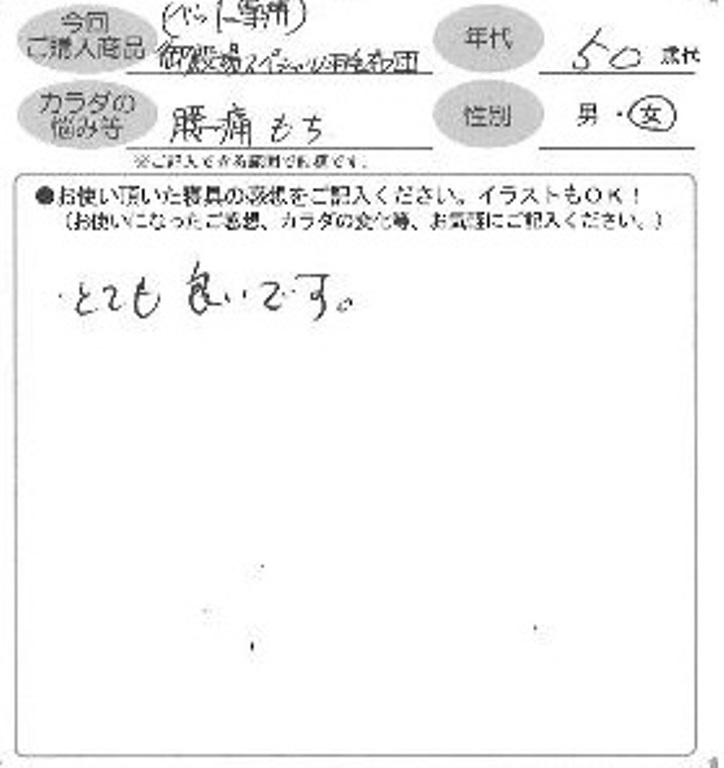 今回
ご購入商品
(ベット専用)
御殿場スペシャル羽毛布団
年代
50歳代
カラダの
悩み等
腰痛もち
性別
男・女
※ご記入できる範囲で結構です。
●お使い頂いた寝具の感想をご記入ください。イラストもOK！
(お使いになったご感想、カラダの変化等、お気軽にご記入ください。)
・とても良いです。